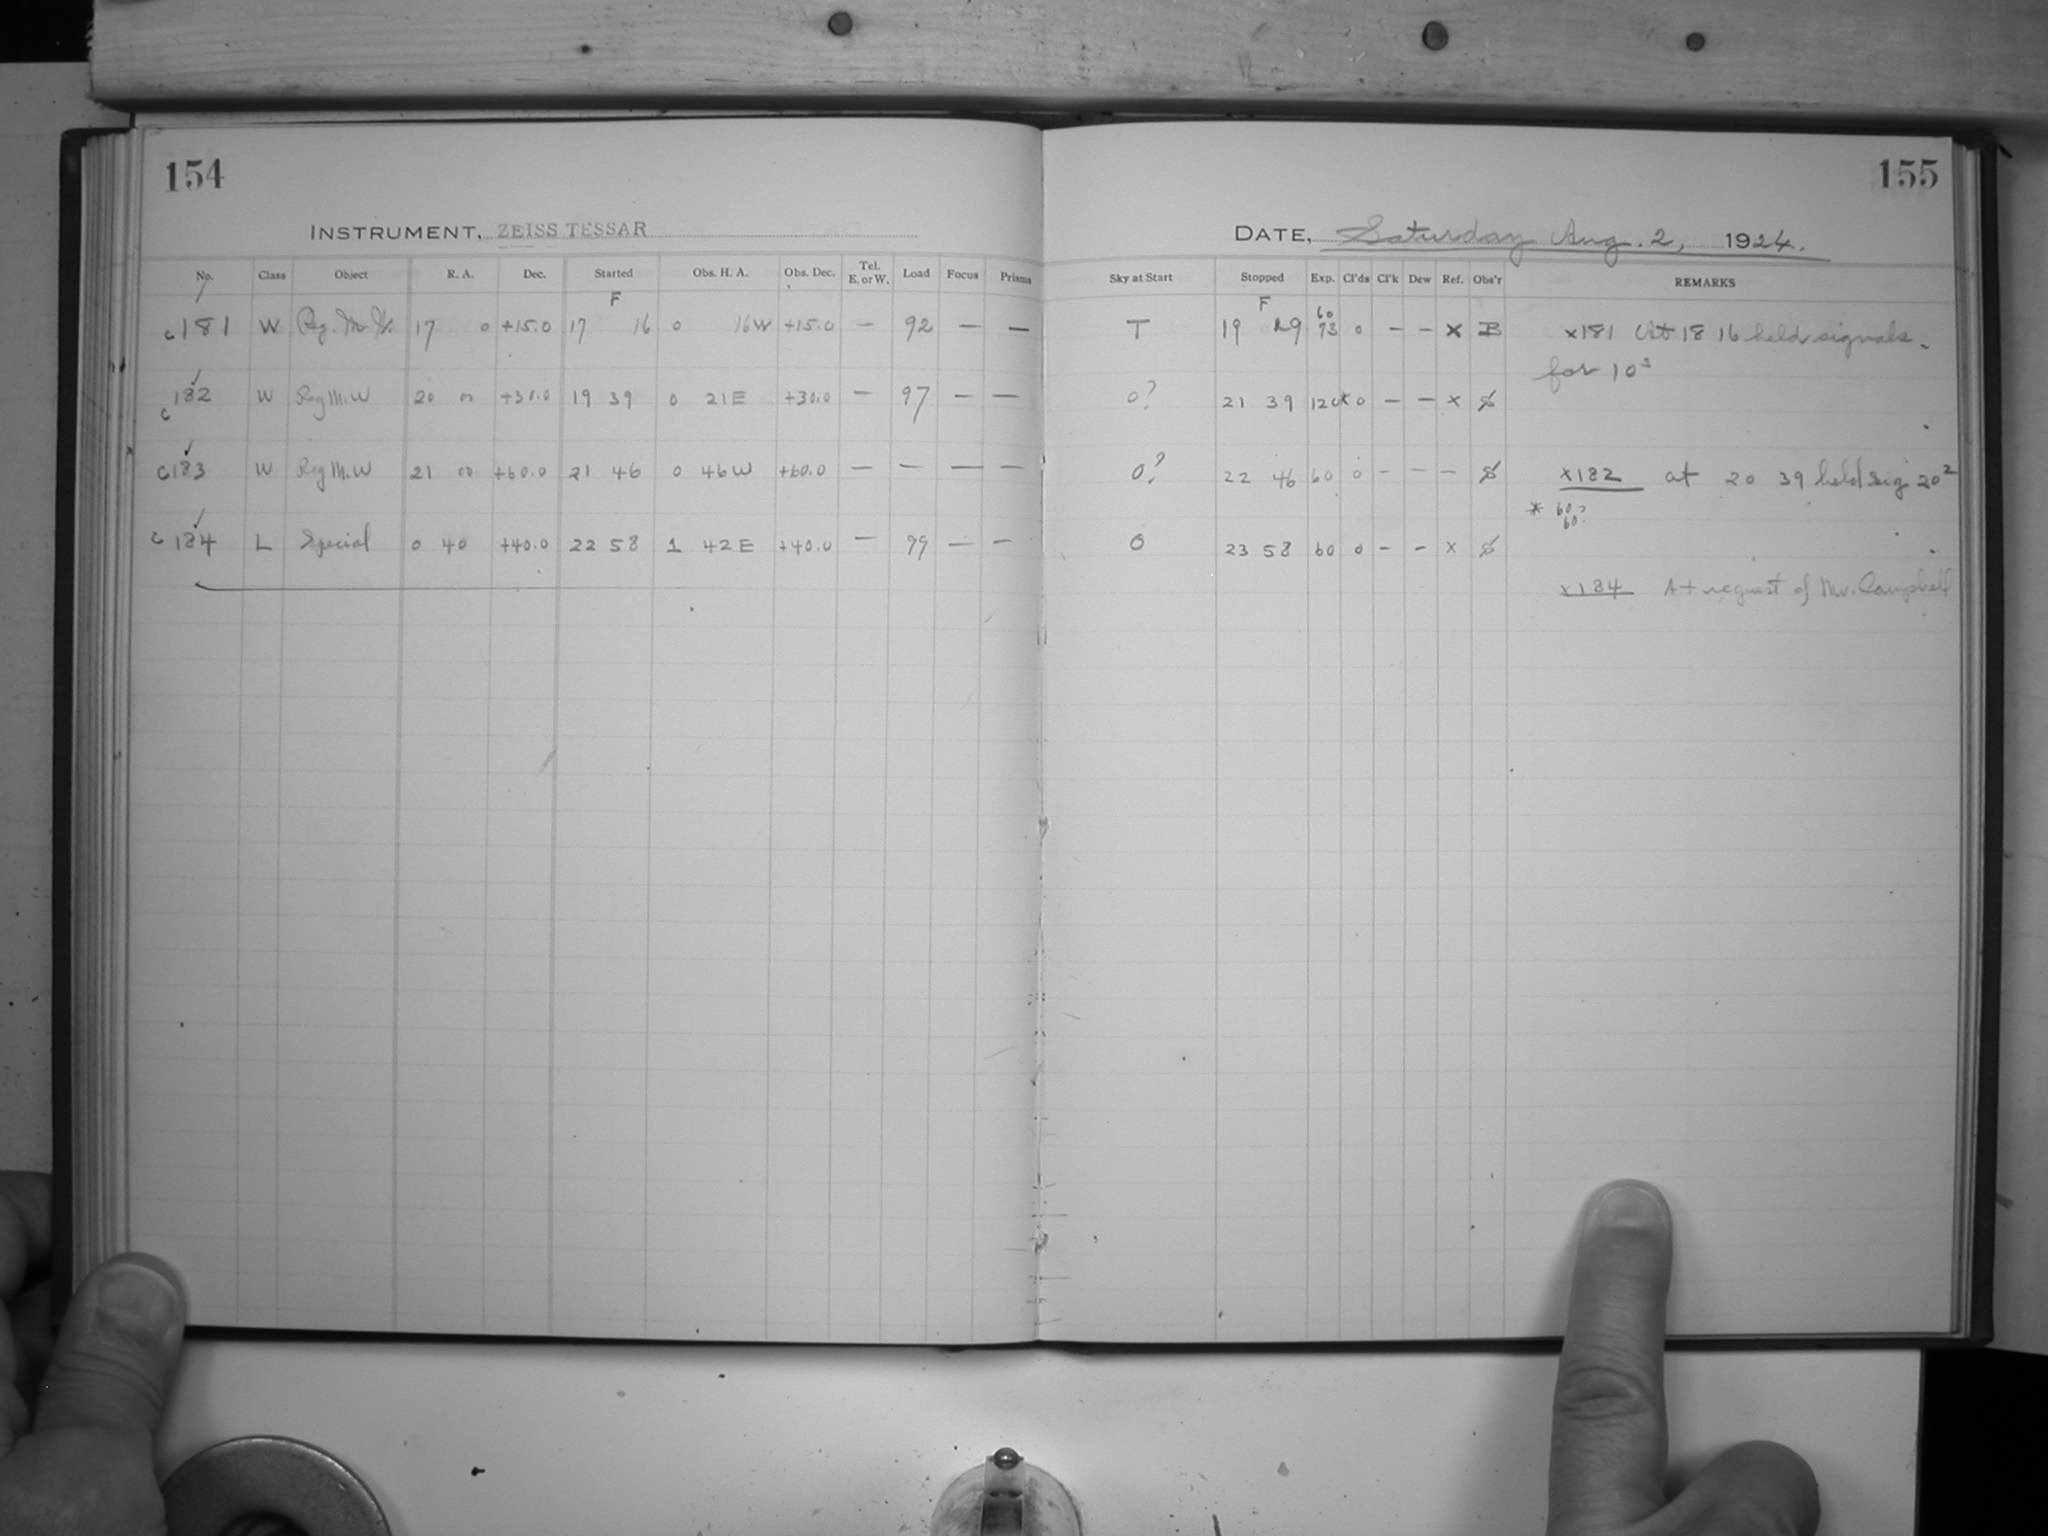 154
INSTRUMENT, ZEISS TESSAR
No. Class Object R. A. Dec. Started Obs. H. A. Obs. Dec. Tel. E. or W. Load Focus Prisms
F
c181 W Reg. M. W. 17 0 +15.0 17 16 0 16W +15.0 — 92 — —
c182 W Reg M.W 20 00 +30.0 19 39 0 21E +30.0 — 97 — —
c183 W Reg M.W 21 00 +60.0 21 46 0 46W +60.0 — — — —
c184 L Special 0 40 +40.0 22 58 1 42E +40.0 — 99 — —
155
DATE, Saturday Aug. 2, 1924.
Sky at Start Stopped Exp. Cl'ds Cl'k Dew Ref. Obs'r REMARKS
F 60
T 19 29 73 0 — — x B x181 At 18 16 held signals
for 10³
0? 21 39 120* 0 — — x
0? 22 46 60 0 — — — x182 at 20 39 held sig 20²
* 60?
60.
0 23 58 60 0 — — x
x184 At request of Mr. Campbell